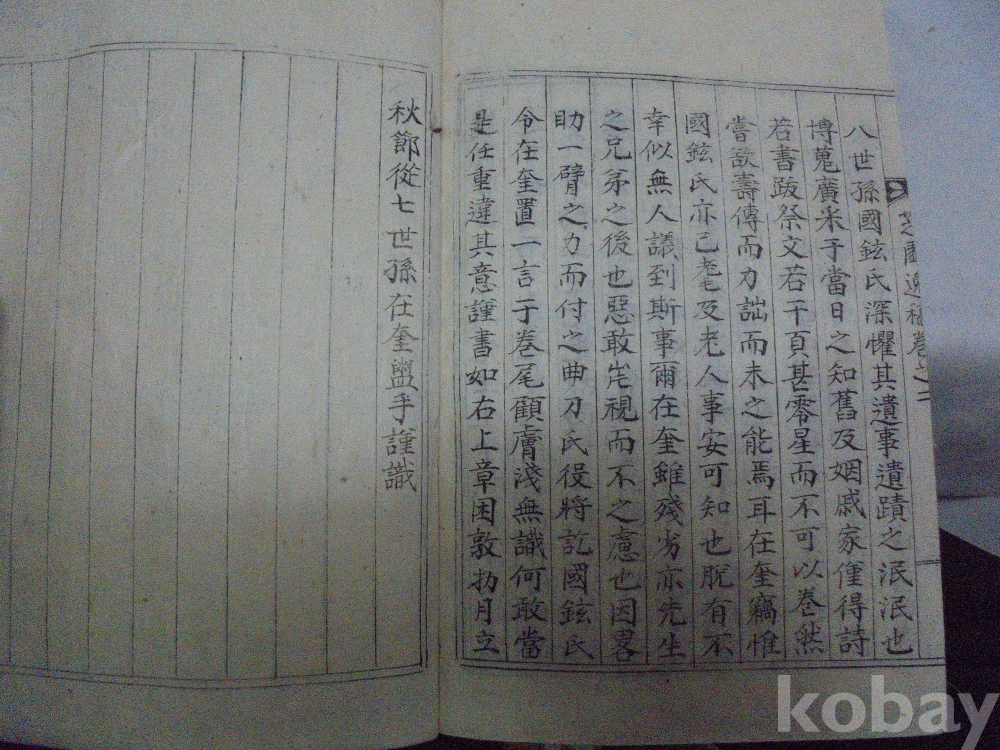 芝園逸稿卷之二
八世孫國鉉氏深懼其遺事遺蹟之泯泯也
博蒐廣采于當日之知舊及姻戚家僅得詩
若書跋祭文若干頁甚零星而不可以卷然
嘗欲壽傳而力詘而未之能焉耳在奎竊惟
國鉉氏亦已耄及老人事安可知也脫有不
幸似無人議到斯事爾在奎雖殘劣亦先生
之兄弟之後也惡敢岸視而不之慮也因畧
助一臂之力而付之曲刀氏役將訖國鉉氏
令在奎置一言于卷尾顧膚淺無識何敢當
是任重違其意謹書如右上章困敦扐月立
秋節從七世孫在奎盥手謹識
kobay